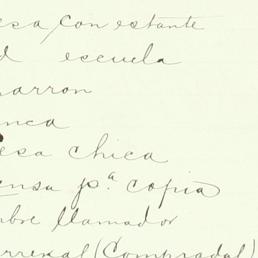 esa con estante
d escuela
arron
nca
esa chica
ensa pª. copia
bre llamador
(Comprada)